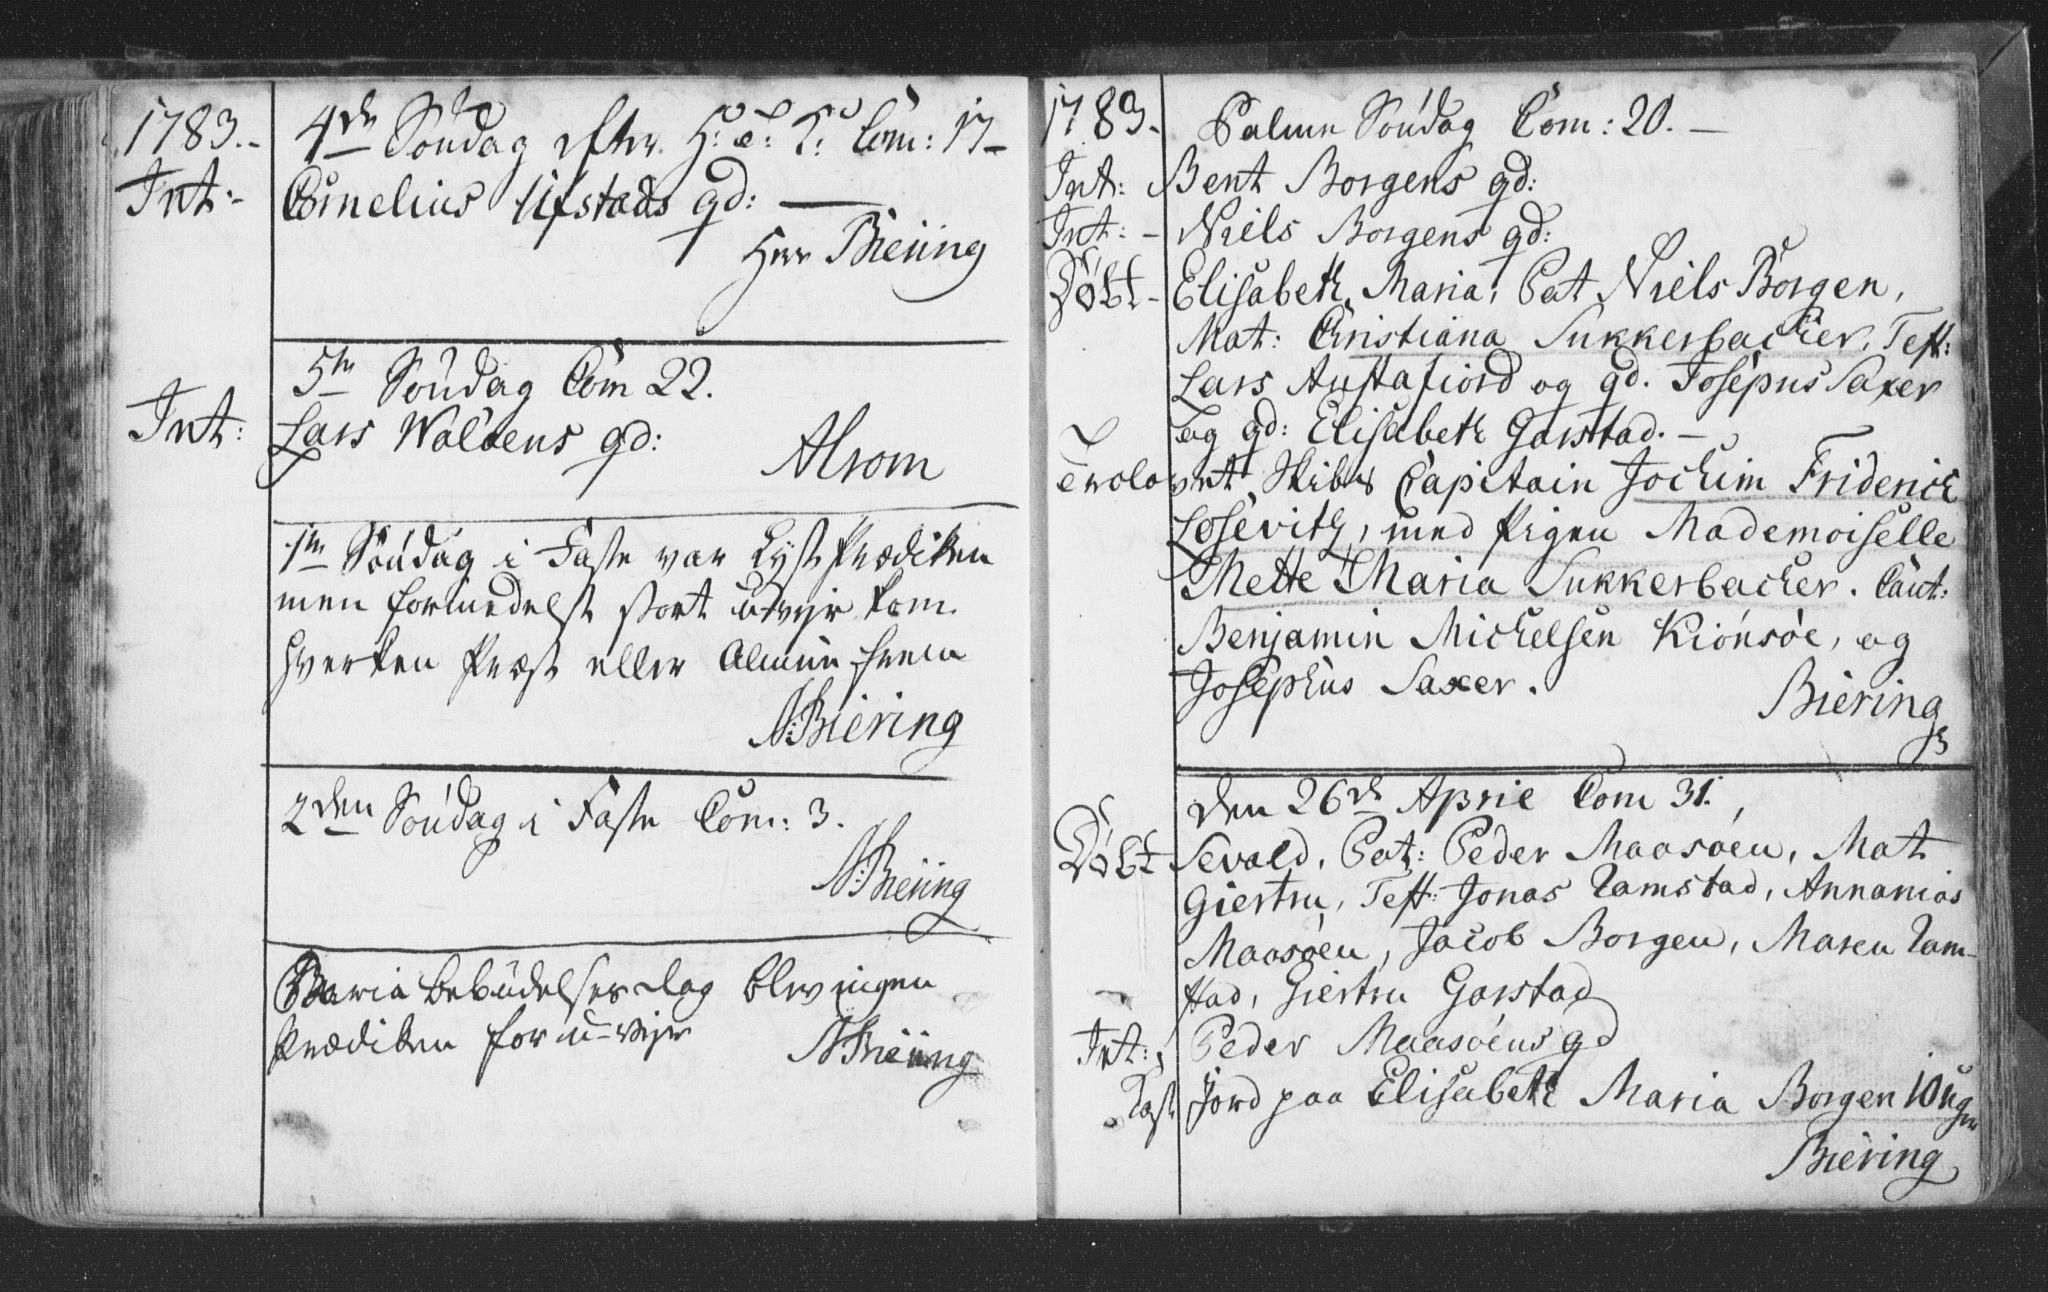 1783.-
4de Søndag efter H: 3: K: Com: 17-
Int:- Cornelius Ufstads qd: —
Herr Biering
5te Søndag Com 22.
Int: Lars Waløens qd:
Alrom
1te Søndag i Faste var Lyst Prædiken
men formedelst stort uveyr kom
hverken Præst eller Almue frem
N: Biering
2den Søndag i Faste Com: 3.
N: Biering
Maria Bebudelses Dag blev ingen
Prædiken for u-veyr
N Biering
1783.- Palme Søndag Com: 20. —
Int: Bent Borgens qd:
Int: - Niels Borgens qd:
Døbt - Elisabeth Maria, Pat Niels Borgen,
Mat: Christiana Sukkerbacker, Test:
Lars Austafiord og qd. Josephus Saxer
og qd: Elisabeth Garstad. —
Trolovet Skibs Capitain Jochim Friderich
Losevitz, med Pigen Mademoiselle
Mette Maria Sukkerbacker. Caut:
Benjamin Michelsen Kiønsøe, og
Josephus Saxer.
Biering
den 26de April Com 31.
Døbt Sevald, Pat: Peder Maasøen, Mat
Giertru, Test: Jonas Ramstad, Annanias
Maasøen, Jacob Borgen, Maren Ram-
stad, Giertru Garstad
Int: Peder Maasøens qd
Kast Jord paa Elisabeth Maria Borgen 10 uger
Biering